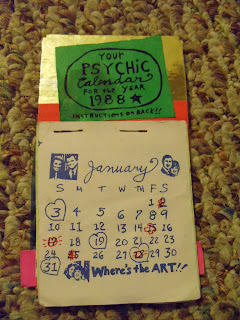 YOUR
PSYCHIC
Calendar
FOR THE YEAR
1988
INSTRUCTIONS ON BACK!!
January
S M T W T F S
1 2
3 4 5 6 7 8 9
10 11 12 13 14 15 16
17 18 19 20 21 22 23
24 25 26 27 28 29 30
31 Where's the ART!!